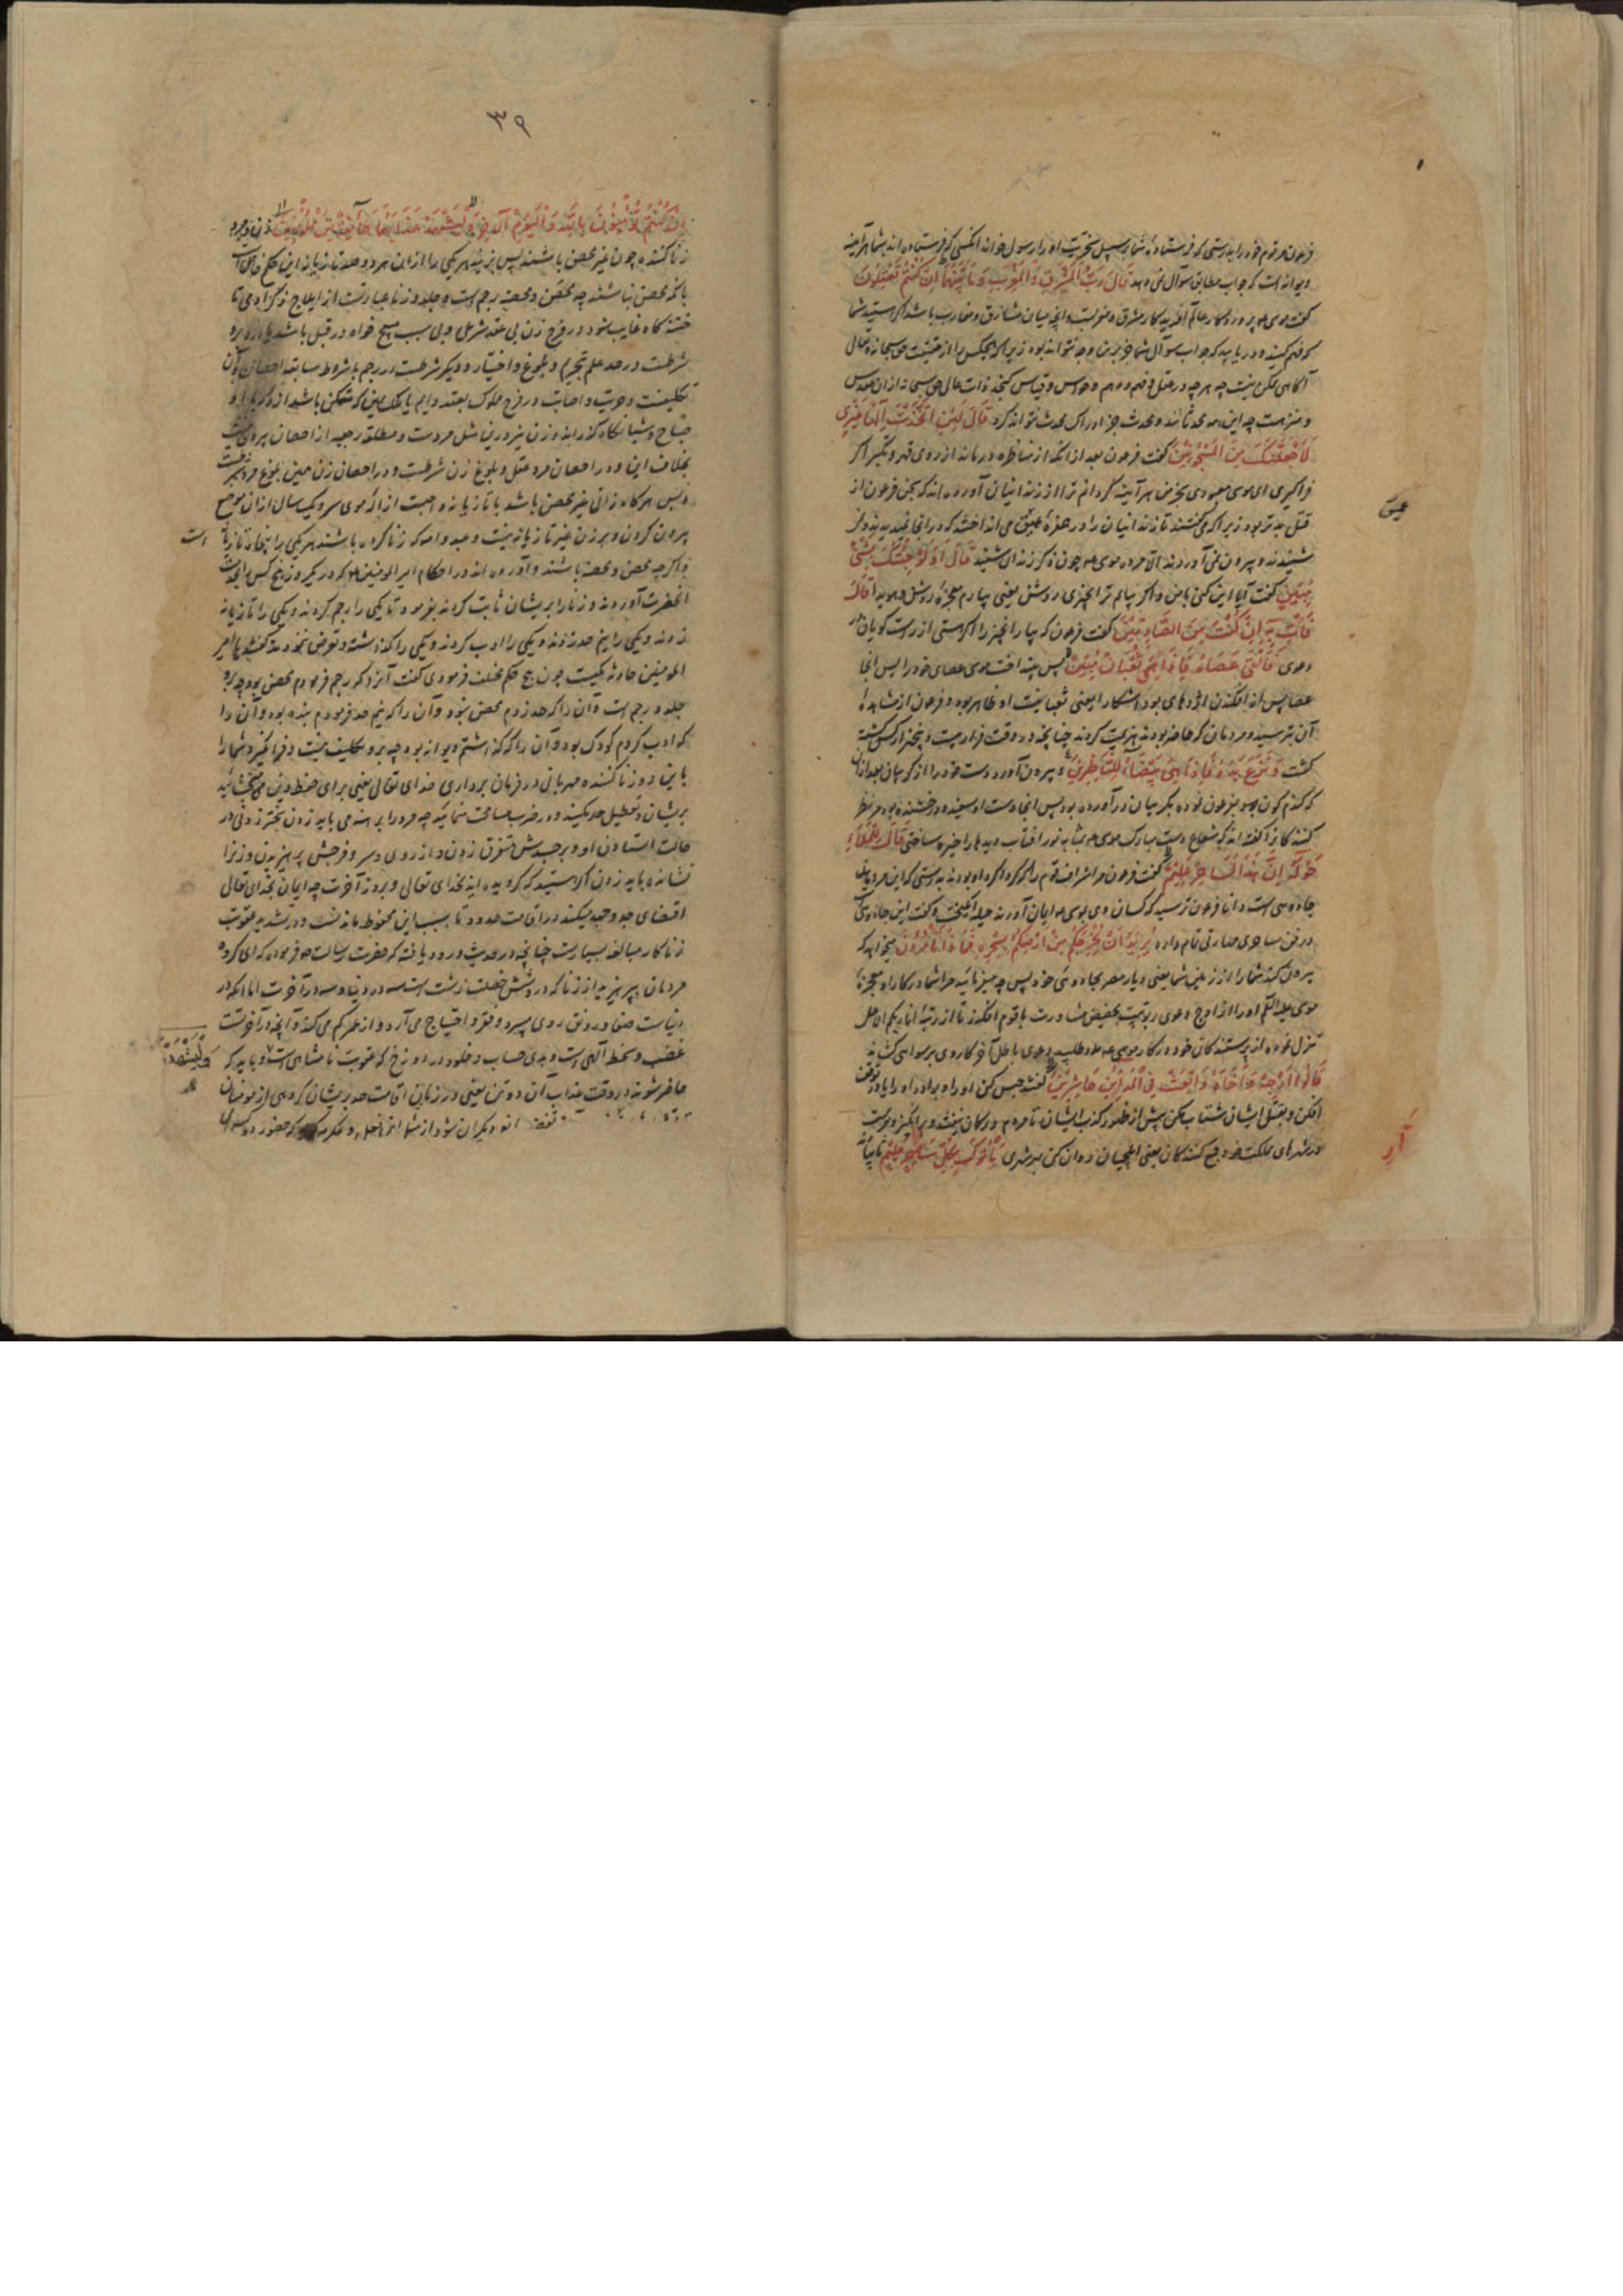 فرعون مر قوم خود را بدرستی که فرستاده شما بر سبیل سخریت او را رسول خواند آنکسی که فرستاده اند بشما هرآینه
دیوانه است که جواب مطابق سوال نمی دهد قَالَ رَبُّ الْمَشْرِقِ وَالْمَغْرِبِ وَمَا بَيْنَهُمَا إِنْ كُنْتُمْ تَعْقِلُونَ
گفت موسی پروردگار عالم آفریدگار مشرق و مغربست و آنچه میان مشارق و مغارب باشد اگر هستید شما
که فهم کنید و دریابید که جواب سوال شما جز برین وجه نتواند بود زیرا که هیچکس را از حقیقت حق سبحانه و تعالی
آگاهی ممکن نیست چه هر چه در عقل و فهم و وهم و حواس و قیاس گنجد ذات عالی حق سبحانه از ان مقدس
و منزهست چه این همه محدثانند و محدث جز ادراک محدث نتواند کرد قَالَ لَئِنِ اتَّخَذْتَ إِلَهًا غَيْرِي
لَأَجْعَلَنَّكَ مِنَ الْمَسْجُونِينَ گفت فرعون بعد از انکه از مناظره درماند از روی قهر و تکبر اگر
فراگیری ای موسی معبودی بجز من هرآینه گردانم ترا از زندانیان آورده اند که سجن فرعون از
قتل بدتر بود زیرا که می گفتند تا زندانیان را در حفره عمیق می انداختند که در انجا نمی دیدند و نمی
عمیق
شنیدند و بیرون نمی آوردند الا مرده موسی چون ذکر زندان شنید قَالَ أَوَلَوْ جِئْتُكَ بِشَيْءٍ
مُبِينٍ گفت آیا این کنی با من و اگر بیایم ترا بچیزی روشن یعنی بیارم معجزه روشن و هویدا قَالَ
فَأْتِ بِهِ إِنْ كُنْتَ مِنَ الصَّادِقِينَ گفت فرعون که بیار آنچیز را اگر هستی از راست گویان در
دعوی فَأَلْقَى عَصَاهُ فَإِذَا هِيَ ثُعْبَانٌ مُبِينٌ پس بینداخت موسی عصای خود را پس آنجا
عصا پس از افکندن اژدهای بود آشکارا یعنی ثعبانیت او ظاهر بود و فرعون از مشاهده
آن بترسید و مردمان که حاضر بودند هزیمت کردند چنانچه در وقت فرار بیست و پنجهزار کس کشته
گشت وَنَزَعَ يَدَهُ فَإِذَا هِيَ بَيْضَاءُ لِلنَّاظِرِينَ و بیرون آورد دست خود را از گریبان بعد از ان
که گندم گون بود بفرعون نموده بگریبان درآورده بود پس آنجا دست او سفید و درخشنده بود مر نظر
کنندگانرا گفته اند که شعاع دست مبارک موسی بمثابه نور آفتاب دیدها را خیره ساختی قَالَ لِلْمَلَإِ
حَوْلَهُ إِنَّ هَذَا لَسَاحِرٌ عَلِيمٌ گفت فرعون مر اشراف قوم را که گرداگرد او بودند بدرستی که این مرد یعنی
جادوسی است دانا فرعون ترسید که کسان وی بموسی ایمان آورند حیله انگیخت و گفت این جادوست
در فن ساحری مهارتی تمام دارد يُرِيدُ أَنْ يُخْرِجَكُمْ مِنْ أَرْضِكُمْ بِسِحْرِهِ فَمَاذَا تَأْمُرُونَ میخواهد که
بیرون کند شما را از زمین شما یعنی دیار مصر بجادوئی خود پس چه میفرمائید مرا شما در کار او معجزه
موسی علیه السلام او را از اوج دعوی ربوبیت بحضیض مشاورت با قوم افکند تا از رتبه انا ربکم الاعلی
تنزل نموده از پرستندگان خود در کار موسی مدد طلبید و دعوی باطل آخر کار وی برسوائی کشاند
قَالُوا أَرْجِهْ وَأَخَاهُ وَابْعَثْ فِي الْمَدَائِنِ حَاشِرِينَ گفتند حبس کن او را و برادر او را یا در توقف
افکن و بقتل ایشان شتاب مکن پیش از ظهور کذب ایشان تا مردم در گمان نیفتند و برانگیز و بفرست
در شهرهای مملکت خود جمع کنندگان یعنی ایلچیان روان کن بهر شهری يَأْتُوكَ بِكُلِّ سَحَّارٍ عَلِيمٍ تا بیارند
آر
٣٩
إِنْ كُنْتُمْ تُؤْمِنُونَ بِاللَّهِ وَالْيَوْمِ الْآخِرِ وَلْيَشْهَدْ عَذَابَهُمَا طَائِفَةٌ مِنَ الْمُؤْمِنِينَ زن و مرد
زنا کننده چون غیر محصن باشند پس بزنید هر یکی را از ان هر دو صد تازیانه این حکم خاص است
بانکه محصن نباشند چه محصن و محصنه رجم است و جلد و زنا عبارتست از ایلاج ذکر آدمی تا
ختنه گاه غایب شود در فرج زن بی عقد شرعی و بی سبب مبیح خواه در قبل باشد یا در دبر و
شرطست در حد علم تحریم و بلوغ و اختیار و دیگر شرطست در رجم با شروط سابقه احصان و آن
تکلیفست و حریت و اصابت در فرج مملوک بعقد دایم یا بملک یمین که متمکن باشد از و که بامداد
صباح و شبانگاه گذراند و زن نیز درین مثل مردست و مطلقه رجعیه از احصان بیرون نیست
بخلاف این و در احصان مرد عقل و بلوغ زن شرطست و در احصان زن همین بلوغ مرد شرطست
و بس هر گاه زانی غیر محصن باشد با تازیانه واجبست ازاله موی سر و یکسال از ان موضع
بیرون کردن و بر زن غیر تازیانه نیست و عبد و امه که زنا کرده باشند هر یکی را پنجاه تازیانه است
و اگرچه محصن و محصنه باشند و آورده اند در احکام امیر المومنین که در یک روز پنج کس را بخدمت
آنحضرت آوردند و زنا را بریشان ثابت کردند بفرمود تا یکی را رجم کردند و یکی را تازیانه
زدند و یکی را نیم حد زدند و یکی را ادب کردند و یکی را گذاشته و تعرض نمودند گفتند یا امیر
المومنین حادثه یکیست چون پنج حکم مختلف فرمودی گفت آنرا که رجم فرمودم محصن بود چه برو
جلد و رجم است و آن را که حد زدم محصن نبود و آن را که نیم حد فرمودم بنده بود و آن را
که ادب کردم کودک بود و آن را که گذاشتم دیوانه بود چه برو تکلیف نیست و فرا نگیرد شما را
باین دو زنا کننده مهربانی در فرمان برداری خدای تعالی یعنی برای حفظ دین می بخشائید
بریشان و تعطیل حد مکنید و در ضرب مسامحت منمائید چه مرد را برهنه می باید زدن سختر زدنی در
حالت استادن او و بر جسدش متفرق زدن و از روی و سر و فرجش پرهیزیدن و زنرا
نشانده باید زدن اگر هستید که گرویده اید بخدای تعالی و بروز آخرت چه ایمان بخدای تعالی
اقتضای جد و جهد میکند در اقامت حدود تا بسبب این محفوظ ماند نسب و در تشدید عقوبت
زناکار مبالغه بسیارست چنانچه در حدیث ورود یافته که حضرت رسالت فرموده که ای گروه
مردمان بپرهیزید از زنا که در و شش خصلت زشت است سه در دنیا و سه در آخرت اما آنکه در
دنیاست صفا و رونق روی میبرد و فقر و احتیاج می آرد و از عمر کم می کند و آنچه در آخرتست
غضب و سخط الهی است و بدی حساب و خلود در دوزخ که عقوبت نامتناهی است و باید که
وَلْيَشْهَدْ
حاضر شوند در وقت عذاب آن دو تن یعنی در زمان اقامت حد بریشان گروهی از مومنان